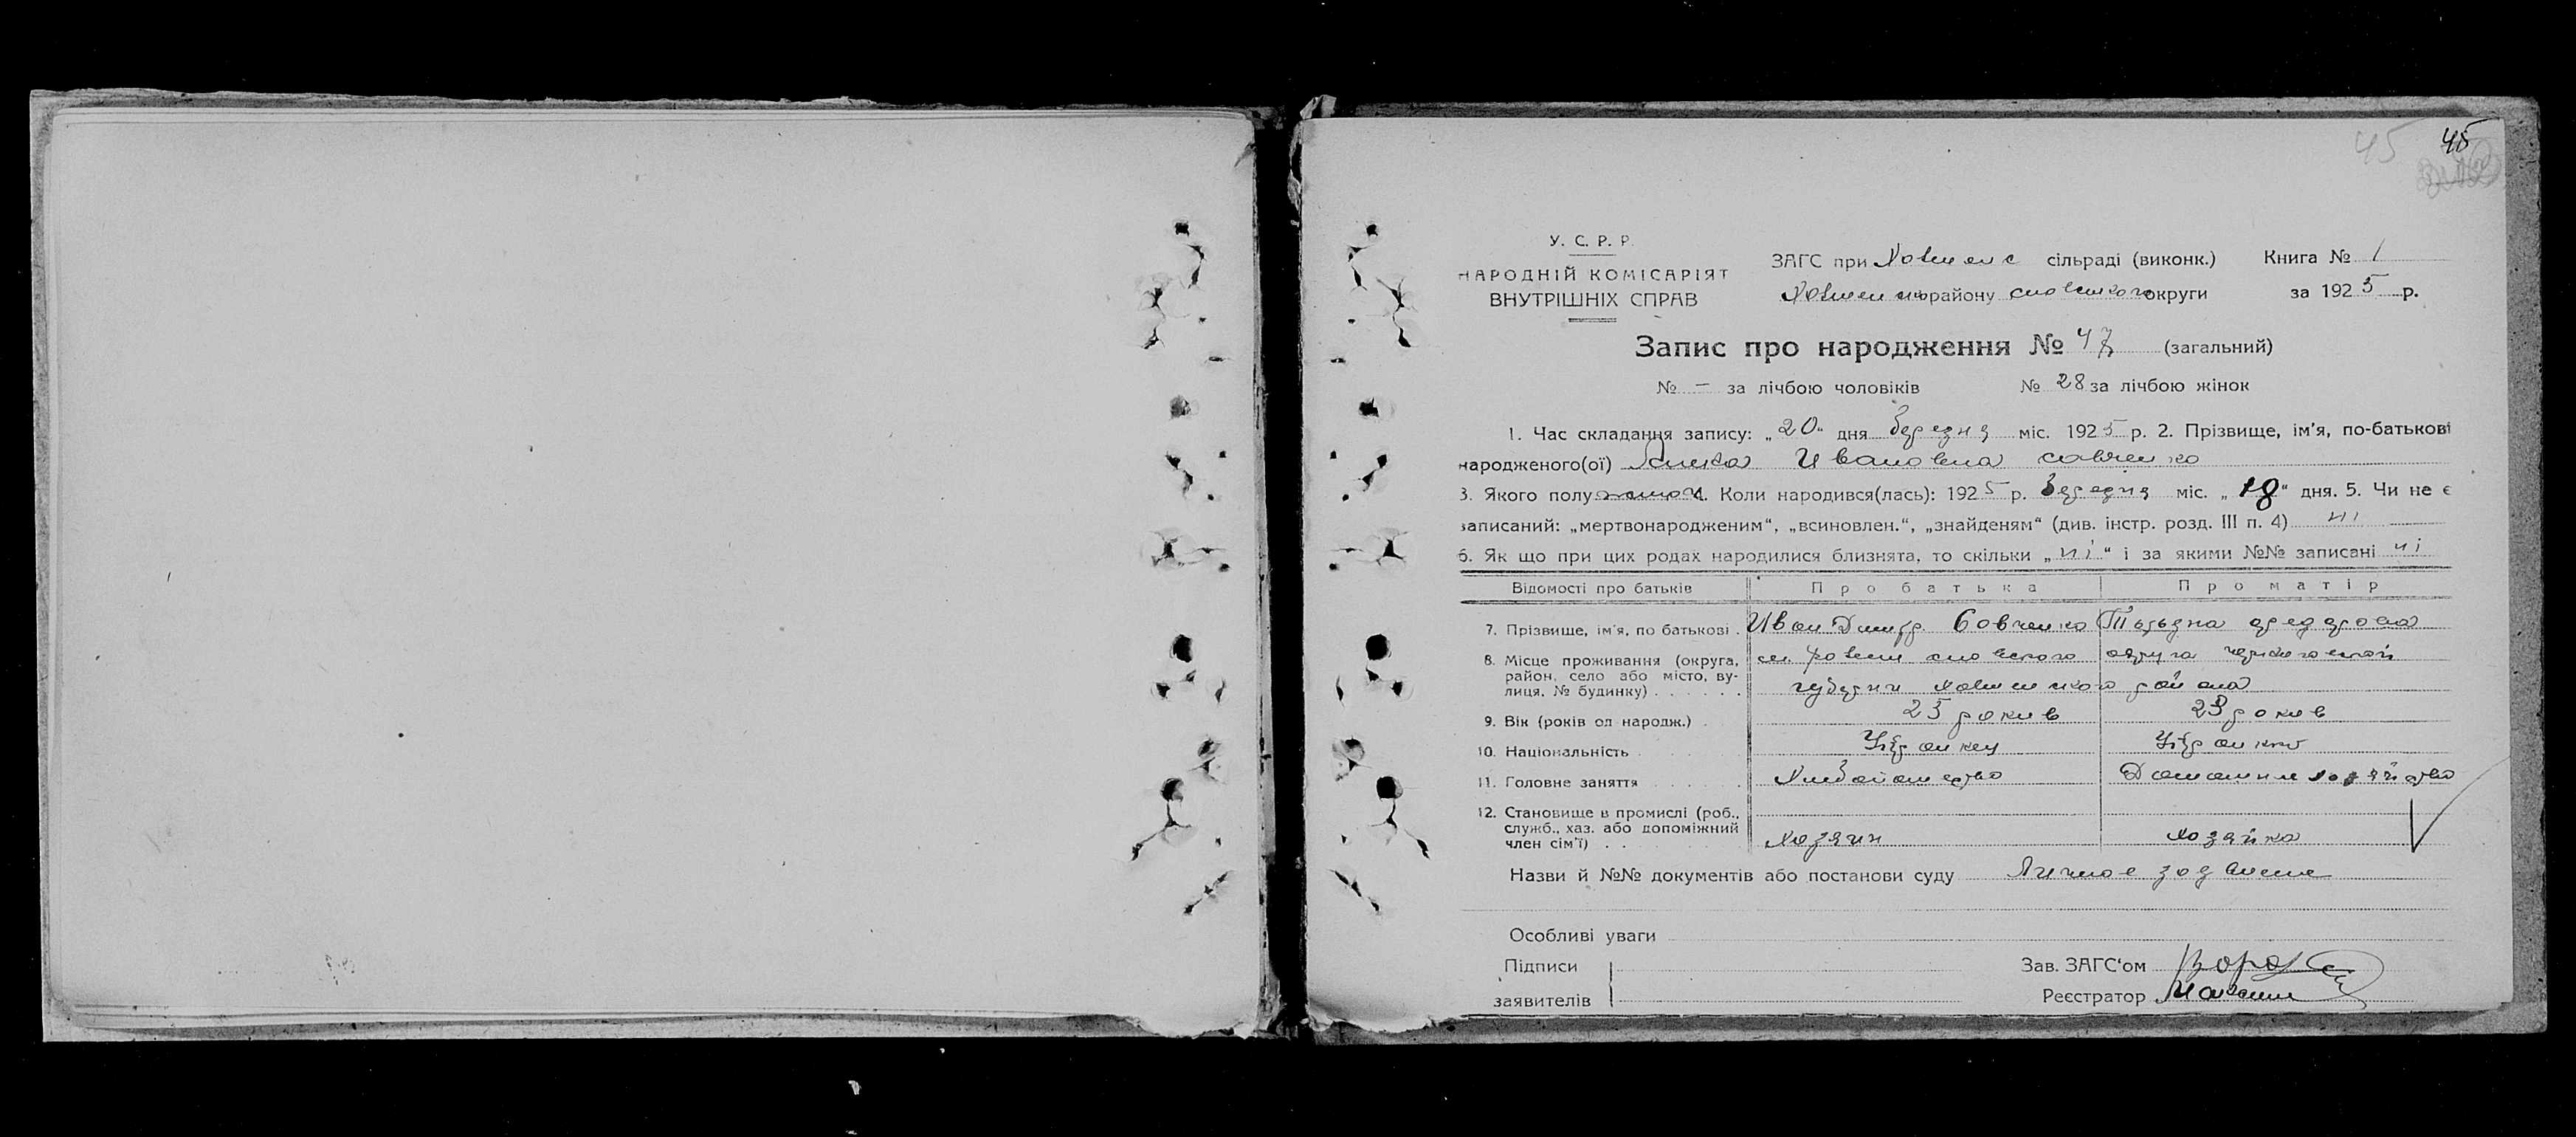 45 45
У. С. Р. Р.
НАРОДНІЙ КОМІСАРІЯТ
ВНУТРІШНІХ СПРАВ
ЗАГС при Ховмен с сільраді (виконк.) Книга № 1
Ховменск району сновского округи за 1925 р.
Запис про народження № 47 (загальний)
№ — за лічбою чоловіків № 28 за лічбою жінок
1. Час складання запису: „20“ дня березня міс. 1925 р. 2. Прізвище, ім’я, по-батькові
народженого(ої) Ивановна савченко
3. Якого полу 4. Коли народився(лась): 1925 р. березня міс. „18“ дня. 5. Чи не є
записаний: „мертвонародженим“, „всиновлен.“, „знайденям“ (див. інстр. розд. III п. 4) ні
6. Як що при цих родах народилися близнята, то скільки „ні“ і за якими №№ записані ні
Відомості про батьків Про батька Про матір
7. Прізвище, ім’я, по батькові . Иван Дмитр. Савченко
8. Місце проживання (округа, район, село або місто, вулиця, № будинку) . . . . . . сновского округа
губерни Ховменского района
9. Вік (років од народж.) . 25 рокив 23 рокив
10. Національність Украинец Украинка
11. Головне заняття . . . . . . Хлибопашество Домашнее хозяйство
12. Становище в промислі (роб., служб., хаз. або допоміжний член сім’ї) . . Хозяин хозяйка
Назви й №№ документів або постанови суду Личное
Особливі уваги
Підписи
заявителів
Зав. ЗАГС‘ом
Реєстратор